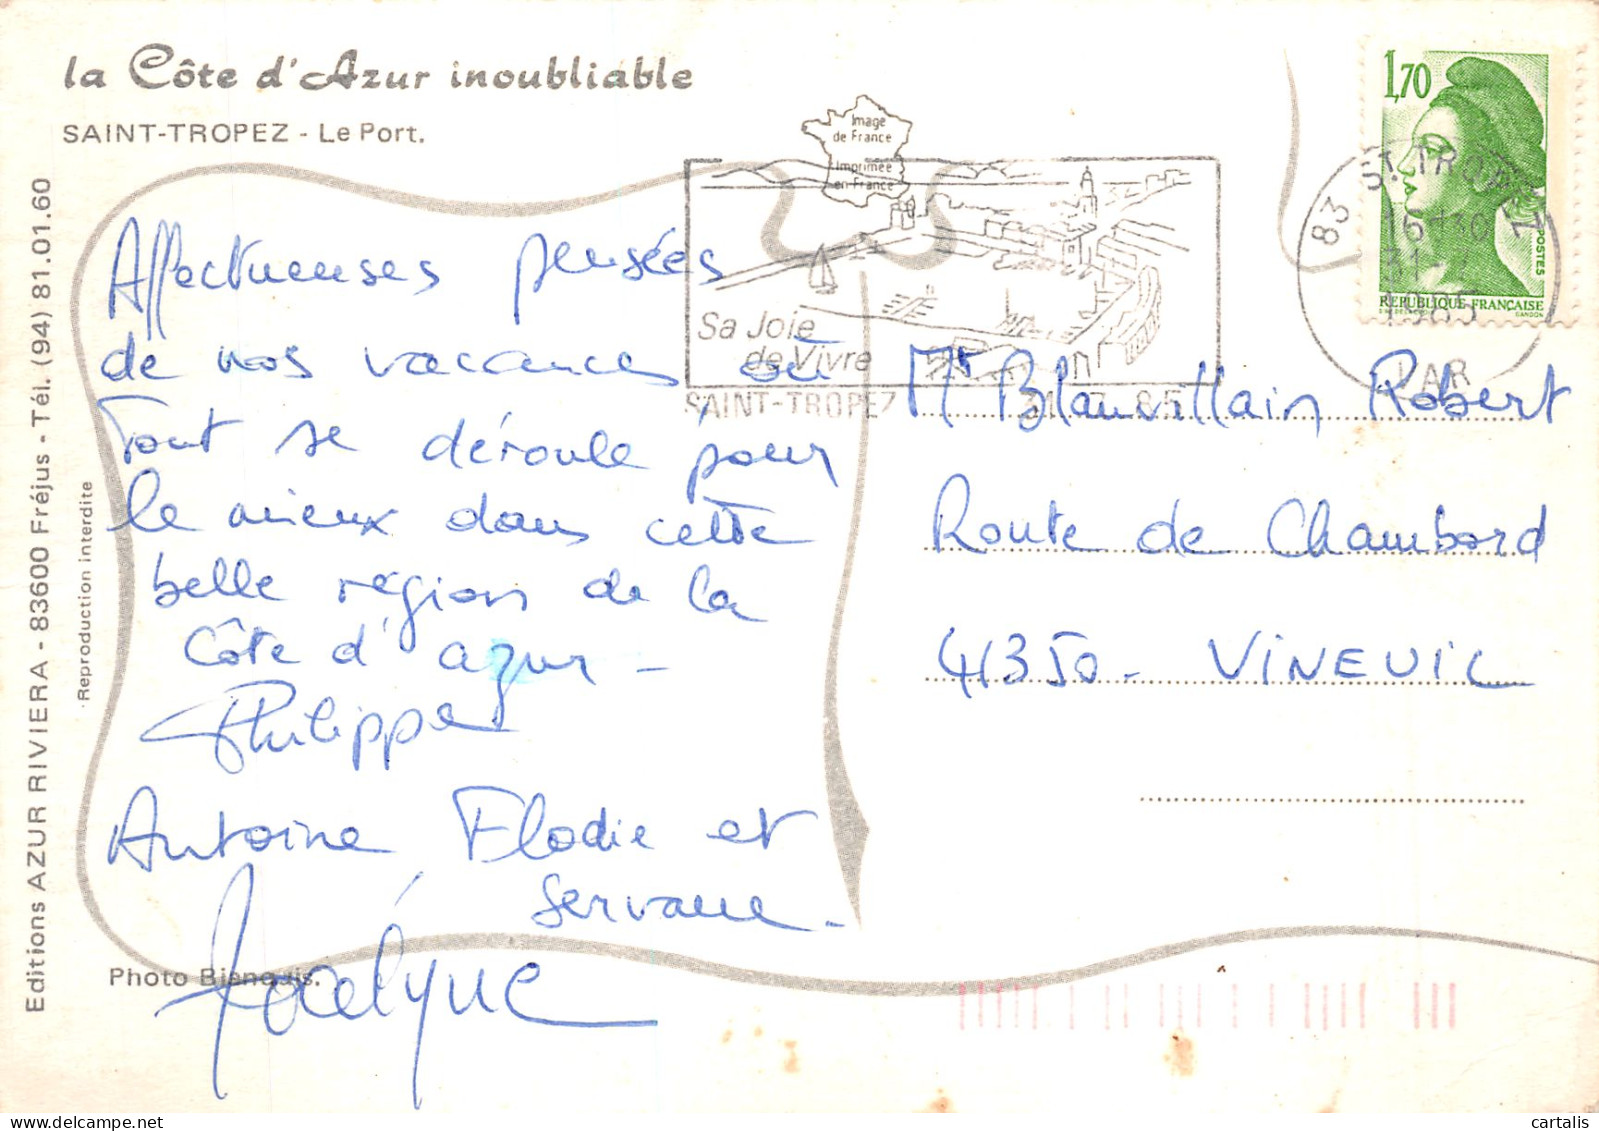 la Côte d'Azur inoubliable
SAINT-TROPEZ - Le Port.
Editions AZUR RIVIERA - 83600 Fréjus - Tél. (94) 81.01.60
Reproduction interdite
Affectueuses pensées
de nos vacances où
Tout se déroule pour
le mieux dans cette
belle région de la
Côte d'azur -
Philippe
Antoine Elodie et
Servane -
Jocelyne
Photo Bienguis.
Image
de France
Imprimée
en France
Sa Joie
de Vivre
SAINT-TROPEZ
1,70
POSTES
REPUBLIQUE FRANÇAISE
GANDON
83 ST. TROPEZ
16H30
1985
VAR
Mr Blauvillain Robert
Route de Chambord
41350 - VINEUIL
cartalis